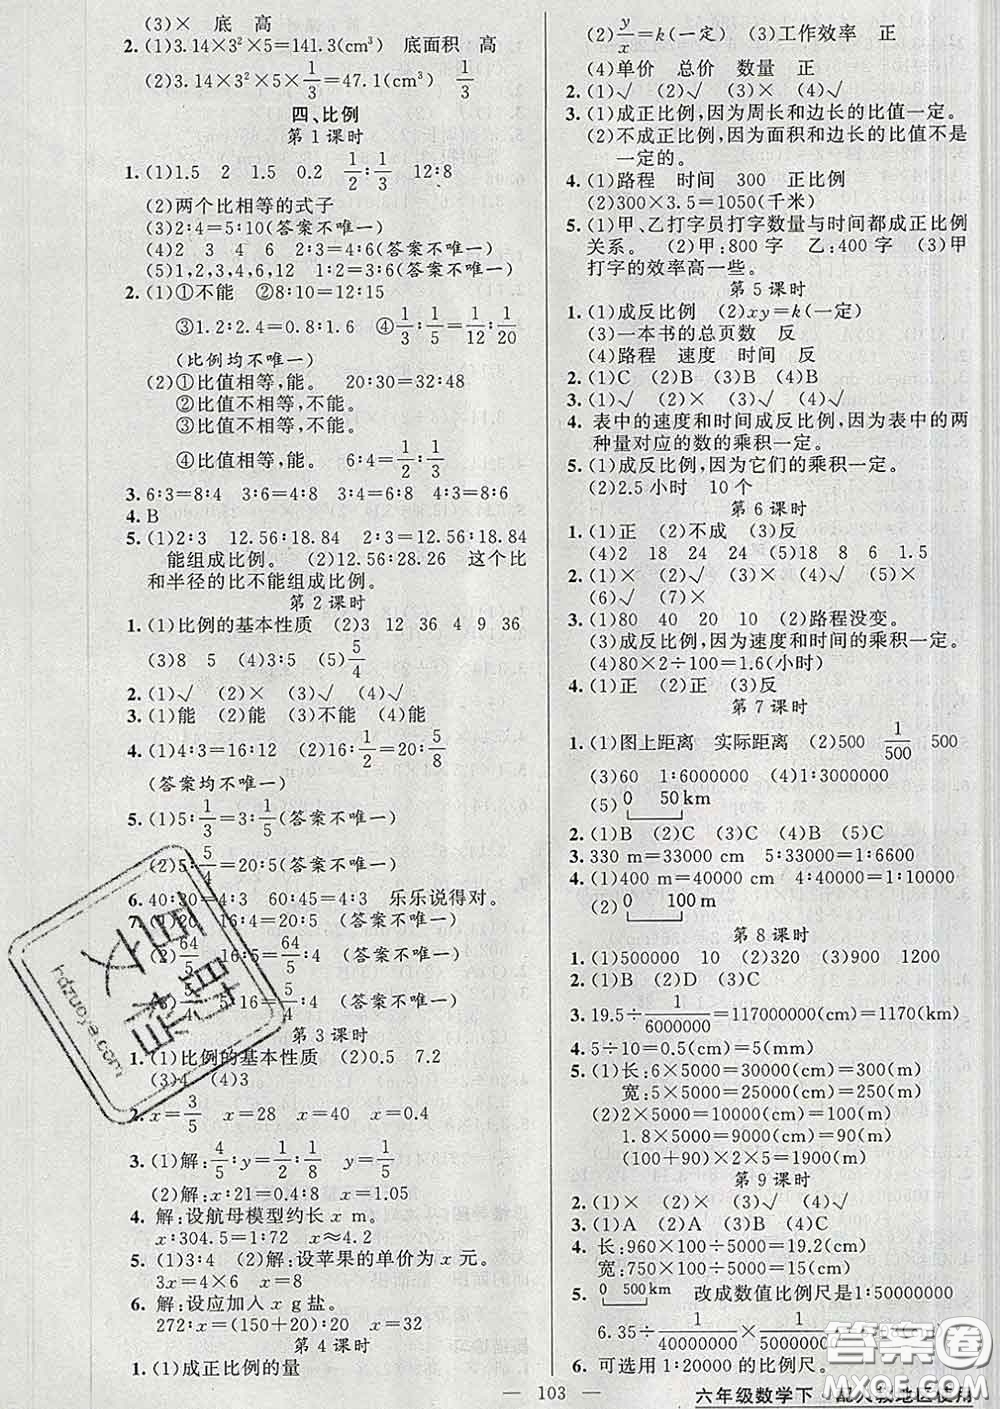 (3)× 底 高
2. (1)3.14×3²×5=141.3(cm³) 底面积 高
(2)3.14×3²×5×1/3=47.1(cm³) 1/3
四、比例
第1课时
1. (1)1.5 2 1.5 0.2 1/2∶1/3 12∶8
(2)两个比相等的式子
(3)2∶4=5∶10(答案不唯一)
(4)2 3 4 6 2∶3=4∶6(答案不唯一)
(5)1,2,3,4,6,12 1∶2=3∶6(答案不唯一)
2. (1)①不能 ②8∶10=12∶15
③1.2∶2.4=0.8∶1.6 ④1/3∶1/5=1/12∶1/20
(比例均不唯一)
(2)①比值相等,能。 20∶30=32∶48
②比值不相等,不能。
③比值不相等,不能。
④比值相等,能。 6∶4=1/2∶1/3
3. 6∶3=8∶4 3∶6=4∶8 6∶8=3∶4 8∶6=4∶3
4. B
5. (1)2∶3 12.56∶18.84 2∶3=12.56∶18.84
能组成比例。 (2)12.56∶28.26 这个比
和半径的比不能组成比例。
第2课时
1. (1)比例的基本性质 (2)3 12 36 4 9 36
(3)8 5 (4)3∶5 (5)5/4
2. (1)√ (2)× (3)√ (4)√
3. (1)能 (2)能 (3)不能 (4)能
4. (1)4∶3=16∶12 (2)16∶1/2=20∶5/8
(答案均不唯一)
5. (1)5∶1/3=3∶1/5(答案不唯一)
(2)5∶5/4=20∶5(答案不唯一)
6. 40∶30=4∶3 60∶45=4∶3 乐乐说得对。
7. (1)20 16∶4=20∶5 (答案不唯一)
(2)64/5 16∶5=64/5∶4 (答案不唯一)
16=5/4∶4 (答案不唯一)
第3课时
1. (1)比例的基本性质 (2)0.5 7.2
(3)4 (4)3
2. x=3/5 x=28 x=40 x=0.4
3. (1)解:4/5∶y=1/2∶1/8 y=1/5
(2)解:x∶21=0.4∶8 x=1.05
4. 解:设航母模型约长 x m。
x∶304.5=1∶72 x≈4.2
5. (1)3∶4 (2)解:设苹果的单价为 x 元。
3x=4×6 x=8
6. 解:设应加入 x g盐。
272∶x=(150+20)∶20 x=32
第4课时
1. (1)成正比例的量
(2)y/x=k(一定) (3)工作效率 正
(4)单价 总价 数量 正
2. (1)√ (2)√ (3)× (4)√
3. (1)成正比例,因为周长和边长的比值一定。
(2)不成正比例,因为面积和边长的比值不是
一定的。
4. (1)路程 时间 300 正比例
(2)300×3.5=1050(千米)
5. (1)甲、乙打字员打字数量与时间都成正比例
关系。 (2)甲:800字 乙:400字 (3)甲
打字的效率高一些。
第5课时
1. (1)成反比例 (2)xy=k(一定)
(3)一本书的总页数 反
(4)路程 速度 时间 反
2. (1)C (2)B (3)B (4)B
3. (1)√ (2)× (3)√ (4)√
4. 表中的速度和时间成反比例,因为表中的两
种量对应的数的乘积一定。
5. (1)成反比例,因为它们的乘积一定。
(2)2.5小时 10个
第6课时
1. (1)正 (2)不成 (3)反
(4)2 18 24 24 (5)18 8 6 1.5
2. (1)× (2)√ (3)× (4)× (5)√
(6)√ (7)×
3. (1)80 40 20 10 (2)路程没变。
(3)成反比例,因为速度和时间的乘积一定。
(4)80×2÷100=1.6(小时)
4. (1)正 (2)正 (3)反
第7课时
1. (1)图上距离 实际距离 (2)500 1/500 500
(3)60 1∶6000000 (4)1∶3000000
(5) 0 50km
2. (1)B (2)C (3)C (4)B (5)C
3. 330 m=33000 cm 5∶33000=1∶6600
4. (1)400 m=40000 cm 4∶40000=1∶10000
(2) 0 100 m
第8课时
1. (1)500000 10 (2)320 (3)900 1200
2. (1)B (2)D (3)C (4)C
3. 19.5÷1/6000000=117000000(cm)=1170(km)
4. 5÷10=0.5(cm)=5(mm)
5. (1)长:6×5000=30000(cm)=300(m)
宽:5×5000=25000(cm)=250(m)
(2)2×5000=10000(cm)=100(m)
1.8×5000=9000(cm)=90(m)
(100+90)×2×5=1900(m)
第9课时
2. (1)× (2)× (3)√ (4)√
3. (1)A (2)A (3)B (4)C
4. 长:960×100÷5000=19.2(cm)
宽:750×100÷5000=15(cm)
5. 0 500km 改成数值比例尺是1∶50000000
6.35÷1/40000000×1/50000000
6. 可选用1∶20000的比例尺。
— 103 —
六年级数学下·配人教地区使用
hdzuoye.com
答案圈
MXQE.COM